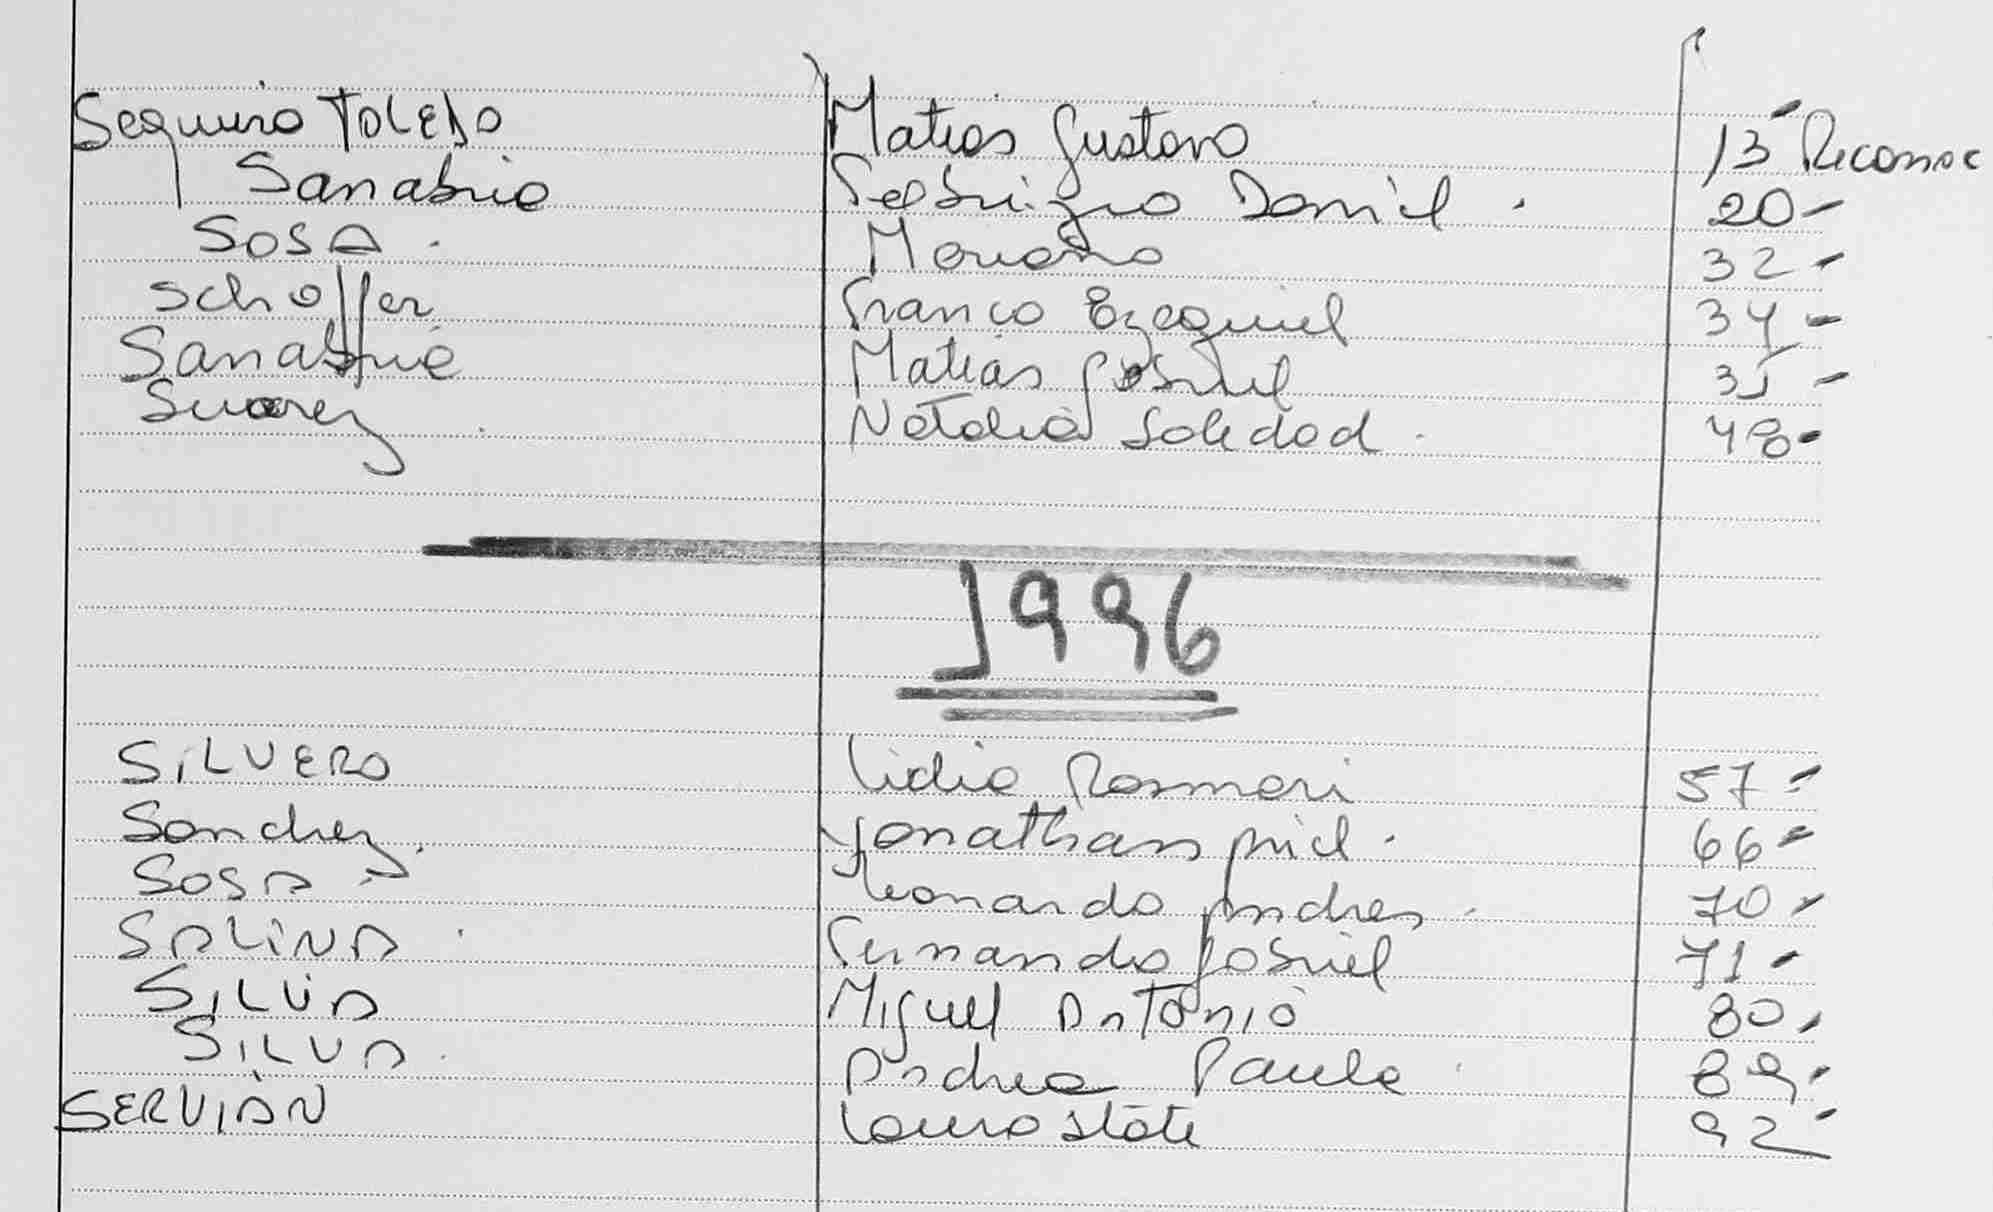 Sequeira TOLEDO Matias Gustavo 13 Reconoc
Sanabria Fabrizio Daniel . 20-
SOSA . Mariano 32-
Schoffer Franco Ezequiel 34-
Sanabria Matias Gabriel 35-
Suarez . Natalia Soledad . 48-
1996
SILVERO Lidia Rosmari 57-
Sanchez . Yonathan Ariel . 66-
SOSA Leonardo Andres . 70-
SALINA . Fernando Gabriel 71-
SILVA Miguel Antonio 80-
SILVA . Andrea Paula . 89-
SERVIAN Laura 92-